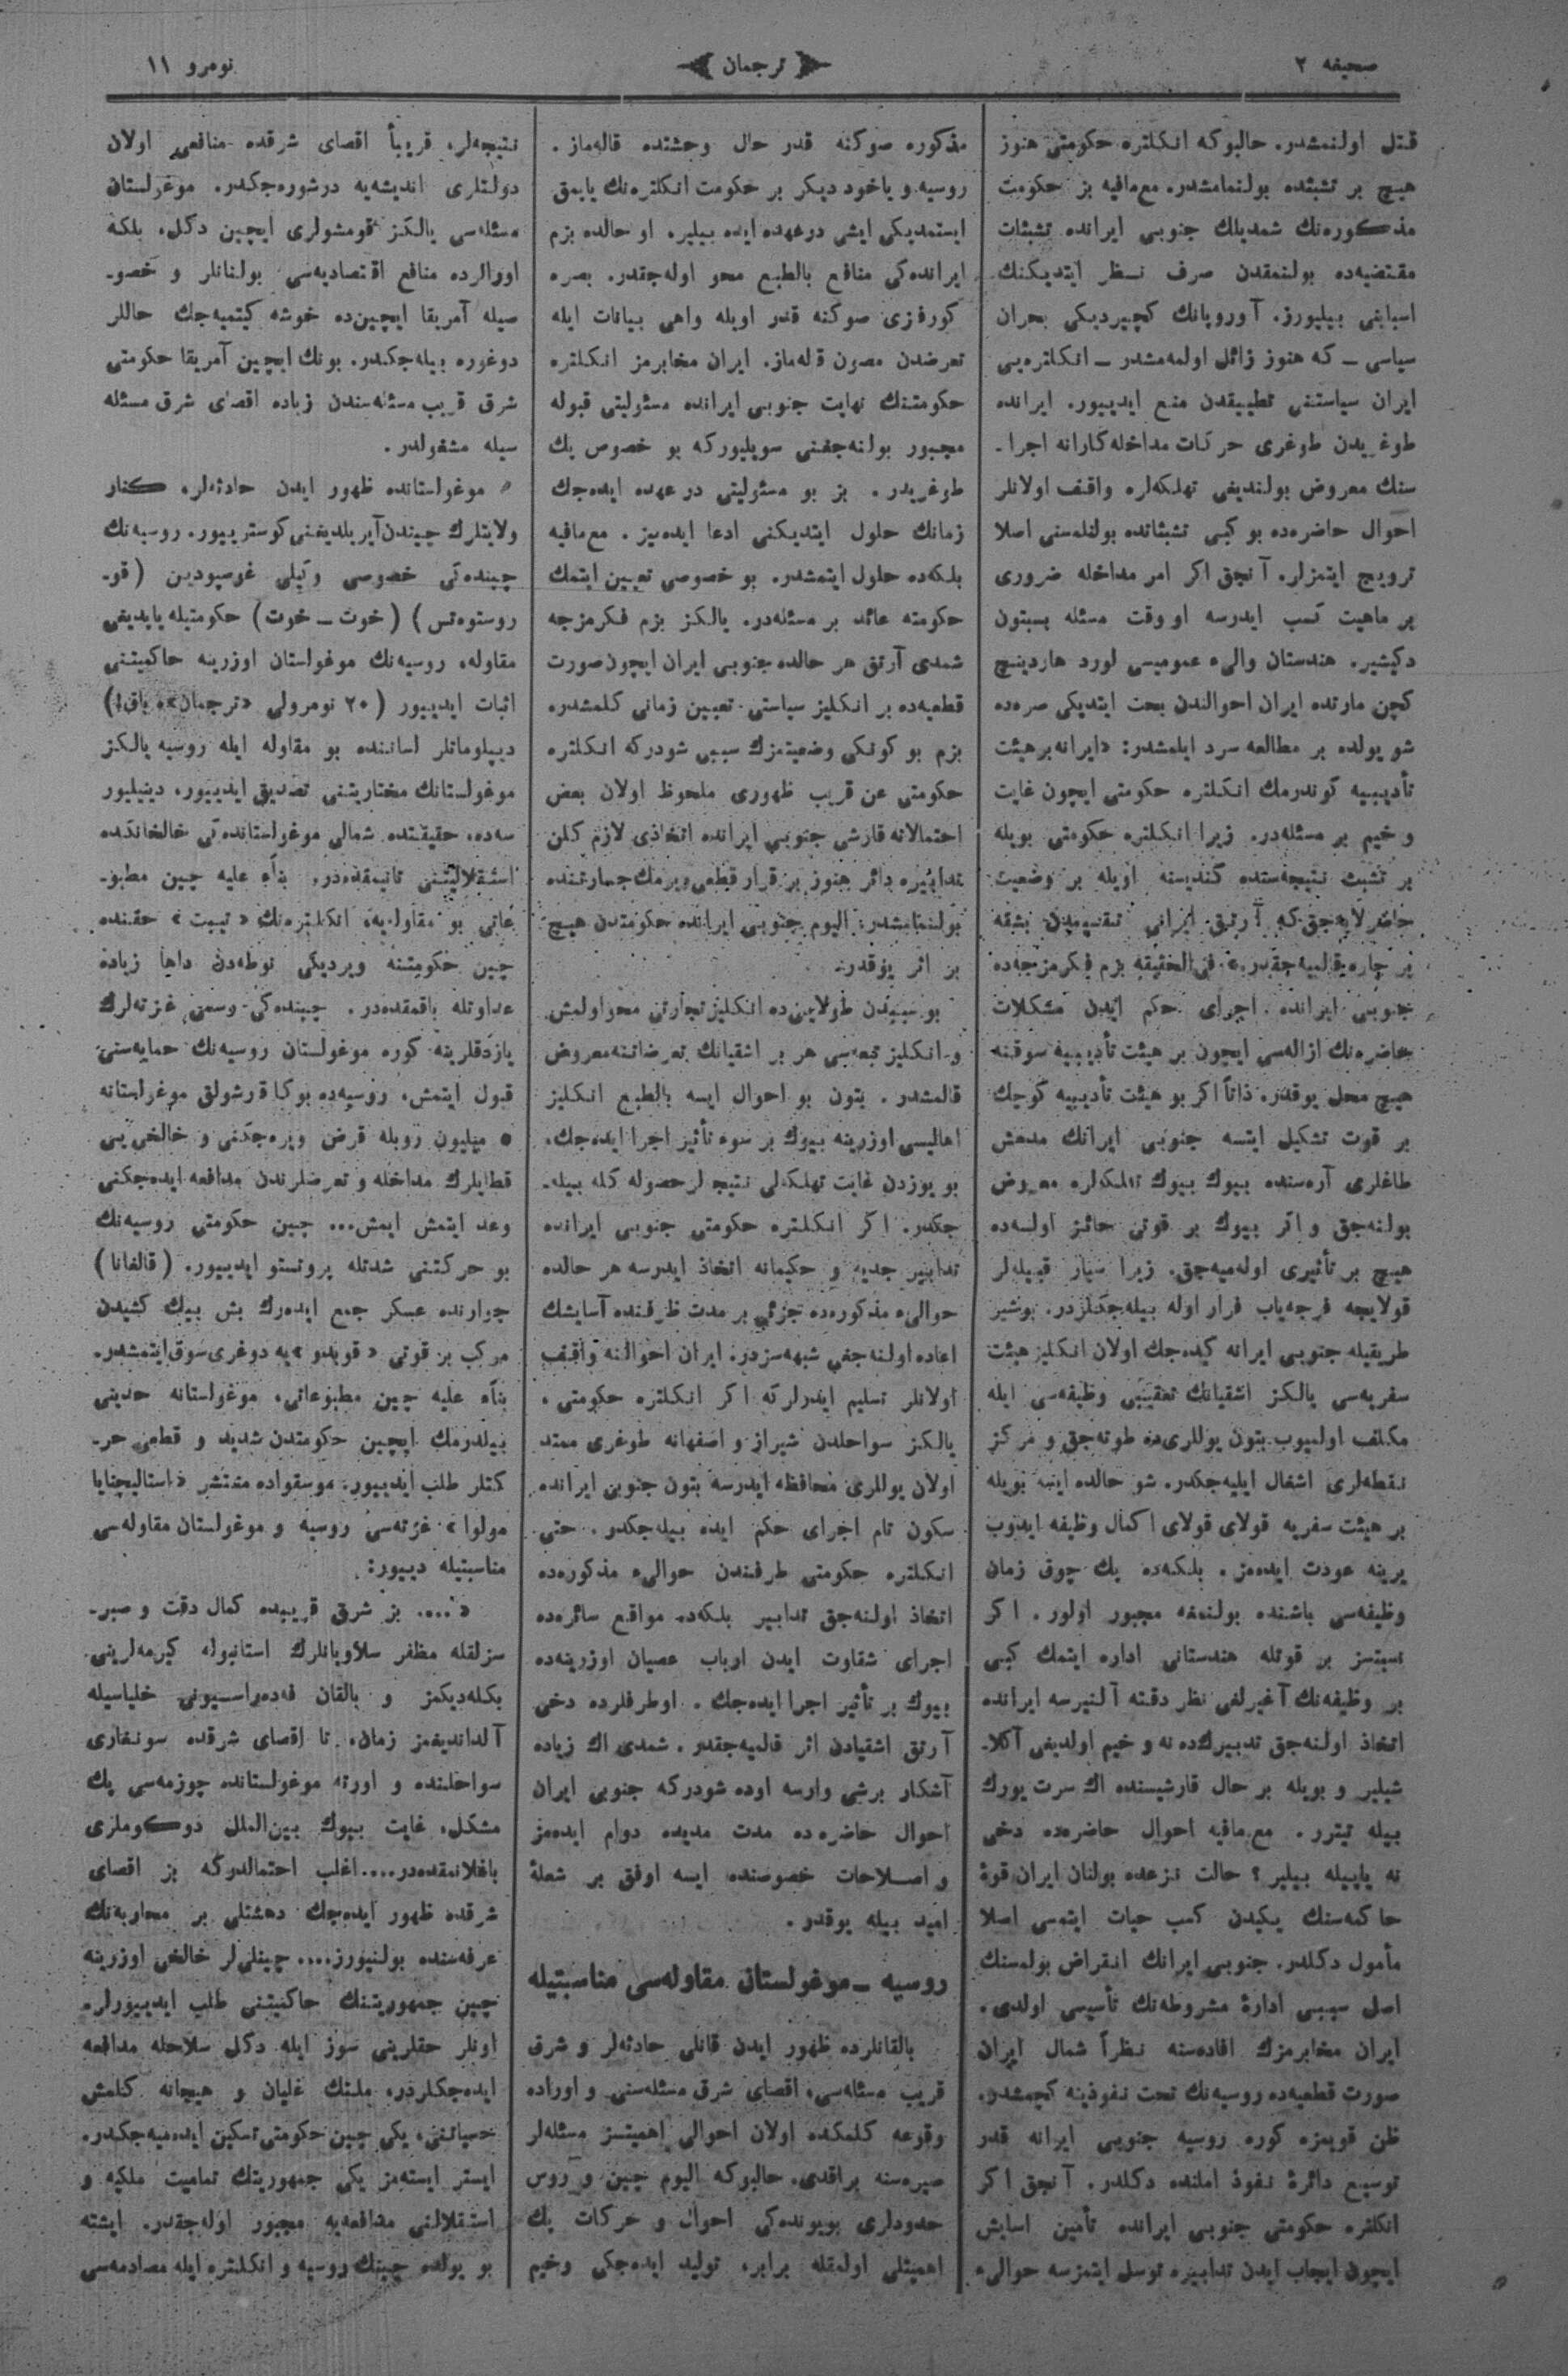 صحیفه ٢
ترجمان
نومرو ١١
قتل اولنمشدر. حالبوكه انكلتره حكومتی هنوز
هیچ بر تشبثده بولنمامشدر. مع‌مافیه بز حكومت
مذكوره‌نك شمدیلك جنوبی ایرانده تشبثات
مقتضیه‌ده بولنمقدن صرف نظر ایتدیكنك
اسبابنی بیلیورز. آوروپانك كچیردیكی بحران
سیاسی ــ كه هنوز زائل اولمه‌مشدر ــ انكلتره‌یی
ایران سیاستنی تطبیقدن منع ایدییور. ایرانده
طوغریدن طوغری حركات مداخله‌كارانه اجرا ـ
سنك معروض بولندیغی تهلكه‌لره واقف اولانلر
احوال حاضره‌ده بو كبی تشبثاتده بولنلمه‌سنی اصلا
ترویج ایتمزلر. آنجق اكر امر مداخله ضروری
بر ماهیت كسب ایدرسه او وقت مسئله بسبتون
دكیشیر. هندستان والیء عمومیسی لورد هاردینیچ
كچن مارتده ایران احوالندن بحث ایتدیكی صره‌ده
شو یولده بر مطالعه سرد ایلمشدر: «ایرانه بر هیئت
تأدیبیه كوندرمك انكلتره حكومتی ایچون غایت
وخیم بر مسئله‌در. زیرا انكلتره حكومتی بویله
بر تشبث نتیجه‌سنده كندیسنه اویله بر وضعیت
حاضرلایه‌جق كه آرتق ایرانی تقسیمدن بشقه
بر چاره قالمیه‌جقدر.» فی‌الحقیقه بزم فكرمزجه‌ده
جنوبی ایرانده اجرای حكم ایدن مشكلات
حاضره‌نك ازاله‌سی ایچون بر هیئت تأدیبیه سوقنه
هیچ محل یوقدر. ذاتاً اكر بو هیئت تأدیبیه كوچك
بر قوت تشكیل ایتسه جنوبی ایرانك مدهش
طاغلری آره‌سنده بیوك بیوك تهلكه‌لره معروض
بولنه‌جق و اكر بیوك بر قوتی حائز اولسه‌ده
هیچ بر تأثیری اوله‌میه‌جق. زیرا سیار قبیله‌لر
قولایجه فرجه‌یاب فرار اوله بیله‌جكلردر. بوشیر
طریقیله جنوبی ایرانه كیده‌جك اولان انكلیز هیئت
سفریه‌سی یالكز اشقیانك تعقیبی وظیفه‌سی ایله
مكلف اولمیوب بتون یوللری‌ده طوته‌جق و مركز
نقطه‌لری اشغال ایلیه‌جكدر. شو حالده ایسه بویله
بر هیئت سفریه قولای قولای اكمال وظیفه ایدوب
یرینه عودت ایده‌مز. بلكه‌ده پك چوق زمان
وظیفه‌سی باشنده بولنمغه مجبور اولور. اكر
نسبتسز بر قوتله هندستانی اداره ایتمك كبی
بر وظیفه‌نك آغیرلغی نظر دقته آلنیرسه ایرانده
اتخاذ اولنه‌جق تدبیرك‌ده نه وخیم اولدیغی آكلا ـ
شیلیر و بویله بر حال قارشیسنده اك سرت یورك
بیله تیترر. مع‌مافیه احوال حاضره‌ده دخی
نه یاپیله بیلیر؟ حالت نزعده بولنان ایران قوۀ
حاكمه‌سنك یكیدن كسب حیات ایتمسی اصلا
مأمول دكلدر. جنوبی ایرانك انقراض بولمه‌سنك
اصل سببی ادارۀ مشروطه‌نك تأسیسی اولدی.
ایران مخابرمزك افاده‌سنه نظراً شمال ایران
صورت قطعیه‌ده روسیه‌نك تحت نفوذینه كچمشدر.
ظن قویمزه كوره روسیه جنوبی ایرانه قدر
توسیع دائرۀ نفوذ املنده دكلدر. آنجق اكر
انكلتره حكومتی جنوبی ایرانده تأمین اسایش
ایچون ایجاب ایدن تدابیره توسل ایتمزسه حوالیء
مذكوره صوكنه قدر حال وحشتده قاله‌ماز.
روسیه و یاخود دیكر بر حكومت انكلتره‌نك یاپمق
ایستمدیكی ایشی درعهده ایده بیلیر. او حالده بزم
ایرانده‌كی منافع بالطبع محو اوله‌جقدر. بصره
كورفزی صوكنه قدر اویله واهی بیانات ایله
تعرضدن مصون قاله‌ماز. ایران مخابرمز انكلتره
حكومتنك نهایت جنوبی ایرانده مسئولیتی قبوله
مجبور بولنه‌جغنی سویلیور كه بو خصوص پك
طوغریدر. بز بو مسئولیتی در عهده ایده‌جك
زمانك حلول ایتدیكنی ادعا ایده‌میز. مع‌مافیه
بلكه‌ده حلول ایتمشدر. بو خصوصی تعیین ایتمك
حكومته عائد بر مسئله‌در. یالكز بزم فكرمزجه
شمدی آرتق هر حالده جنوبی ایران ایچون صورت
قطعیه‌ده بر انكلیز سیاستی تعیین زمانی كلمشدر.
بزم بو كونكی وضعیتمزك سببی شودر كه انكلتره
حكومتی عن قریب ظهوری ملحوظ اولان بعض
احتمالاته قارشی جنوبی ایرانده اتخاذی لازم كلن
تدابیره دائر هنوز بر قرار قطعی ویرمك جسارتنده
بولنمامشدر. الیوم جنوبی ایرانده حكومتدن هیچ
بر اثر یوقدر.
بو سببدن طولایی‌ده انكلیز تجارتی محو اولمش
و انكلیز تبعه‌سی هر بر اشقیانك تعرضاتنه معروض
قالمشدر. بتون بو احوال ایسه بالطبع انكلیز
اهالیسی اوزرینه بیوك بر سوء تأثیر اجرا ایده‌جك،
بو یوزدن غایت تهلكه‌لی نتیجه‌لر حصوله كله بیله ـ
جكدر. اكر انكلتره حكومتی جنوبی ایرانده
تدابیر جدیه و حكیمانه اتخاذ ایدرسه هر حالده
حوالیء مذكوره‌ده جزئی بر مدت ظرفنده آسایشك
اعاده اولنه‌جغی شبهه‌سزدر. ایران احوالنه واقف
اولانلر تسلیم ایدرلر كه اكر انكلتره حكومتی،
یالكز سواحلدن شیراز و اصفهانه طوغری ممتد
اولان یوللری محافظه ایدرسه بتون جنوبی ایرانده
سكون تام اجرای حكم ایده بیله‌جكدر. حتی
انكلتره حكومتی طرفندن حوالیء مذكوره‌ده
اتخاذ اولنه‌جق تدابیر بلكه‌ده مواقع سائره‌ده
اجرای شقاوت ایدن ارباب عصیان اوزرینه‌ده
بیوك بر تأثیر اجرا ایده‌جك. اوطرفلرده دخی
آرتق اشقیادن اثر قالمیه‌جقدر. شمدی اك زیاده
آشكار بر شی وارسه اوده شودر كه جنوبی ایران
احوال حاضره‌ده مدت مدیده دوام ایده‌مز
و اصلاحات خصوصنده ایسه اوفق بر شعلۀ
امید بیله یوقدر.
روسیه ــ موغولستان مقاوله‌سی مناسبتیله
بالقانلرده ظهور ایدن قانلی حادثه‌لر و شرق
قریب مسئله‌سی، اقصای شرق مسئله‌سنی و اوراده
وقوعه كلمكده اولان احوالی اهمیتسز مسئله‌لر
صره‌سنه براقدی. حالبوكه الیوم چین و روس
حدودلری بویونده‌كی احوال و حركات پك
اهمیتلی اولمقله برابر، تولید ایده‌جكی وخیم
نتیجه‌لر، قریباً اقصای شرقده منافعی اولان
دولتلری اندیشه‌یه درشوره‌جكدر. موغولستان
مسئله‌سی یالكز قومشولری ایچین دكل، بلكه
اورالرده منافع اقتصادیه‌سی بولنانلر و خصو ـ
صیله آمریقا ایچین‌ده خوشه كیتمیه‌جك حاللر
دوغوره بیله‌جكدر. بونك ایچین آمریقا حكومتی
شرق قریب مسئله‌سندن زیاده اقصای شرق مسئله
سیله مشغولدر.
موغولستانده ظهور ایدن حادثه‌لر، كنار
ولایتلرك چیندن آیریلدیغنی كوسترییور. روسیه‌نك
چینده‌كی خصوصی وكیلی غوسپودین (قو ـ
روستوه‌تس) (خوت ــ خوت) حكومتیله یاپدیغی
مقاوله، روسیه‌نك موغولستان اوزرینه حاكمیتنی
اثبات ایدییور (٢٠ نومرولی «ترجمان»ه باق!)
دیپلوماتلر لساننده بو مقاوله ایله روسیه یالكز
موغولستانك مختاریتنی تصدیق ایدییور، دینیلیور
سه‌ده، حقیقتده شمالی موغولستانده‌كی خالخانكده
استقلالیتنی تانیمقده‌در. بناءً علیه چین مطبو ـ
عاتی بو مقاوله‌یه، انكلتره‌نك «تیبت» حقنده
چین حكومتنه ویردیكی نوطه‌دن داها زیاده
عداوتله باقمقده‌در. چینده‌كی رسمی غزته‌لرك
یازدقلرینه كوره موغولستان روسیه‌نك حمایه‌سنی
قبول ایتمش، روسیه‌ده بوكا قارشولق موغولستانه
٥ میلیون روبله قرض ویره‌جكنی و خالخی‌یی
قطایلرك مداخله و تعرضلرندن مدافعه ایده‌جكنی
وعد ایتمش ایمش... چین حكومتی روسیه‌نك
بو حركتنی شدتله پروتستو ایدییور. (قالغانا)
جوارنده عسكر جمع ایده‌رك بش بیك كشیدن
مركب بر قوتی «قوبدو»یه دوغری سوق ایتمشدر.
بناءً علیه چین مطبوعاتی، موغولستانه حدینی
بیلدرمك ایچین حكومتدن شدید و قطعی حر ـ
كتلر طلب ایدییور. موسقواده منتشر «استالیچنایا
مولوا» غزته‌سی روسیه و موغولستان مقاوله‌سی
مناسبتیله دییور:
«.... بز شرق قریبده كمال دقت و صبر ـ
سزلقله مظفر سلاویانلرك استانبوله كیرمه‌لرینی
بكله‌دیكمز و بالقان فه‌ده‌راسیونی خلیاسیله
آلداندیغمز زمان، تا اقصای شرقده سونغاری
سواحلنده و اورته موغولستانده چوزمه‌سی پك
مشكل، غایت بیوك بین‌الملل دوكوملری
باغلانمقده‌در.... اغلب احتمالدر كه بز اقصای
شرقده ظهور ایده‌جك دهشتلی بر محاربه‌نك
عرفه‌سنده بولنیورز.... چینلی‌لر خالخی اوزرینه
چین جمهوریتنك حاكمیتنی طلب ایدییورلر.
اونلر حقلرینی سوز ایله دكل سلاحله مدافعه
ایده‌جكلردر، ملتك غلیان و هیجانه كلمش
حسیاتنی، یكی چین حكومتی تسكین ایده‌میه‌جكدر.
ایستر ایسته‌مز یكی جمهوریتك تمامیت ملكیه و
استقلالنی مدافعه‌یه مجبور اوله‌جقدر. ایشته
بو یولده چینك روسیه و انكلتره ایله مصادمه‌سی